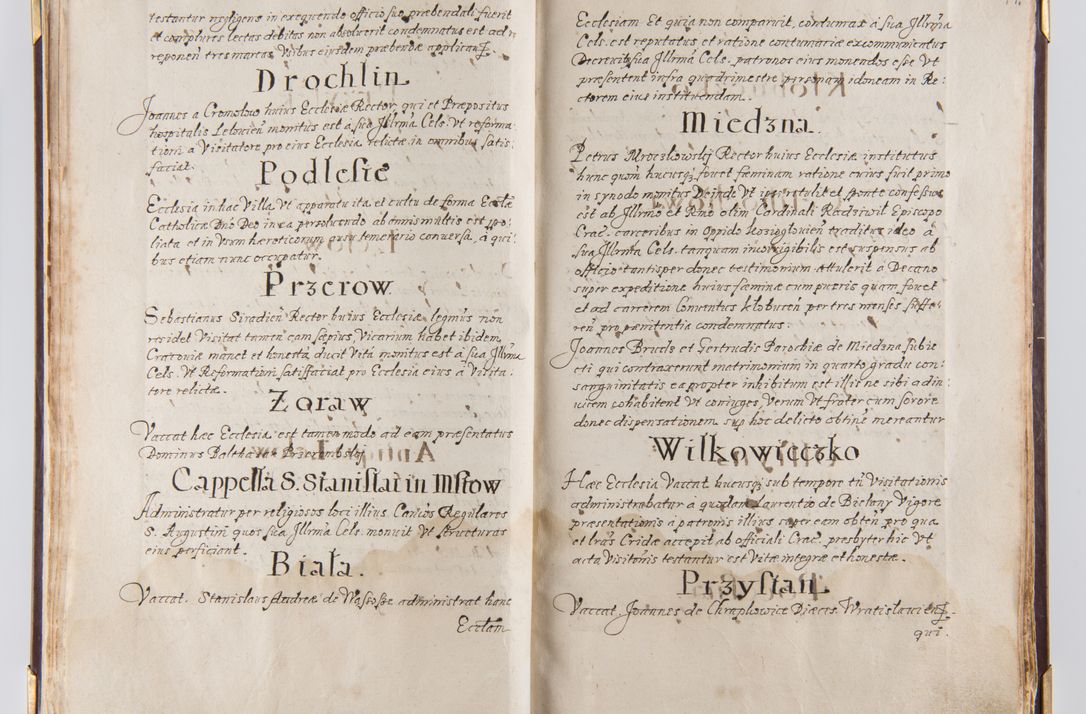 testantur negligens in exequendo officio suo præbendali fuerit
et complures lectas debitas non absolverit condemnatus est ad
reponen tres marcas Usibus eiusdem præbendæ applican
Drochlin
Joannes a Cromolow huius Ecclesiæ Rector, qui et Præpositus
hospitalis Lelovien monitus est à sua Jllrma Cels. Vt reforma
tioni a Visitatore pro eius Ecclesia relictæ in omnibus satis
faciat.
Podlesie
Ecclesia in hac Villa Vt apparatu ita et cultu de forma Ecctæ
Catholicæ Dno Deo in ea persoluendo ab annis multis est spo
liata et in Vsum hæreticorum ausu temerario conversa, à qui
bus etiam nunc occupatur.
Przerow
Sebastianus Siradien Rector huius Ecclesiæ legmus non
residet Visitat tamen eam sæpius, Vicarium habet ibidem,
Cracoviæ manet et honestã ducit Vitã monitus est à sua Jllrma
Cels. Vt Reformationi satisfaciat pro Ecclesia eius à Visita
tore relictæ.
Zoraw
Vaccat hæc Ecclesia est tamen modo ad eam præsentatus
Dominus Balthasar Przerembskj
Cappella S. Stanislai in Mstow
Administratur per religiosos loci illius Canicos Regulares
S. Augustini quos sua Jllrma Cels. monuit Vt structuras
eius perficiant.
Biała.
Vaccat. Stanislaus Andreæ de Wąsosze administrat hanc
Ecctam
Ecclesiam. Et quia non comparuit, contumax à sua Jllrma
Cels. est reputatus et ratione contumaciæ excommunicatus
Decrevit sua Jllrma Cels. patronos eius monendos esse Vt
præsentent infra quadrimestre personam idoneam in Re
ctorem eius instituendam.
Miedzna.
Petrus Mroczkowskj Rector huius Ecclesiæ institutus
hunc quoḿ hucusq fovet fæminam ratione cuius fuit primo
in synodo monitus Deinde Vt ipse retulit et sponte confessus
est ab Jllrmo et Rmo olim Cardinali Radziwil Episcopo
Crac. carceribus in Oppido Koziogłowien traditus ideo à
sua Jllrma Cels. tanquam incorrigibilis est suspensus ab
officio tantisper donec testimonium Attulerit à Decano
super expeditione huius fæminæ cum pueris quam fovet
et ad carcerem Conventus Klobucen per tres menses suffe
ren pro pænitentia condemnatus.
Joannes Brucls et Gertrudis Parochiæ de Miedzna subie
cti qui contraxerunt matrimonium in quarto gradu con
sanguinitatis ea propter inhibitum est illi ne sibi ad in
uicem cohabitent Vt coniuges, Verum Vt frater cum sorore
donec dispensationem sup hoc delicto obtine mereantur
Wilkowieczko
Hæc Ecclesia Vaccat hucusq sub tempore tn Visitationis
administrabatur à quodam Laurentio de Bielany Vigore
præsentationis à patronis illius super eam obten pro qua
et lras Cridæ accepit ab officiali Crac. presbyter hic Vt
acta Visitonis testantur est Vitæ integræ et honestæ.
Przystań
Vaccat. Joannes de Chraplowice Diæcis. Wratislavien
qui.